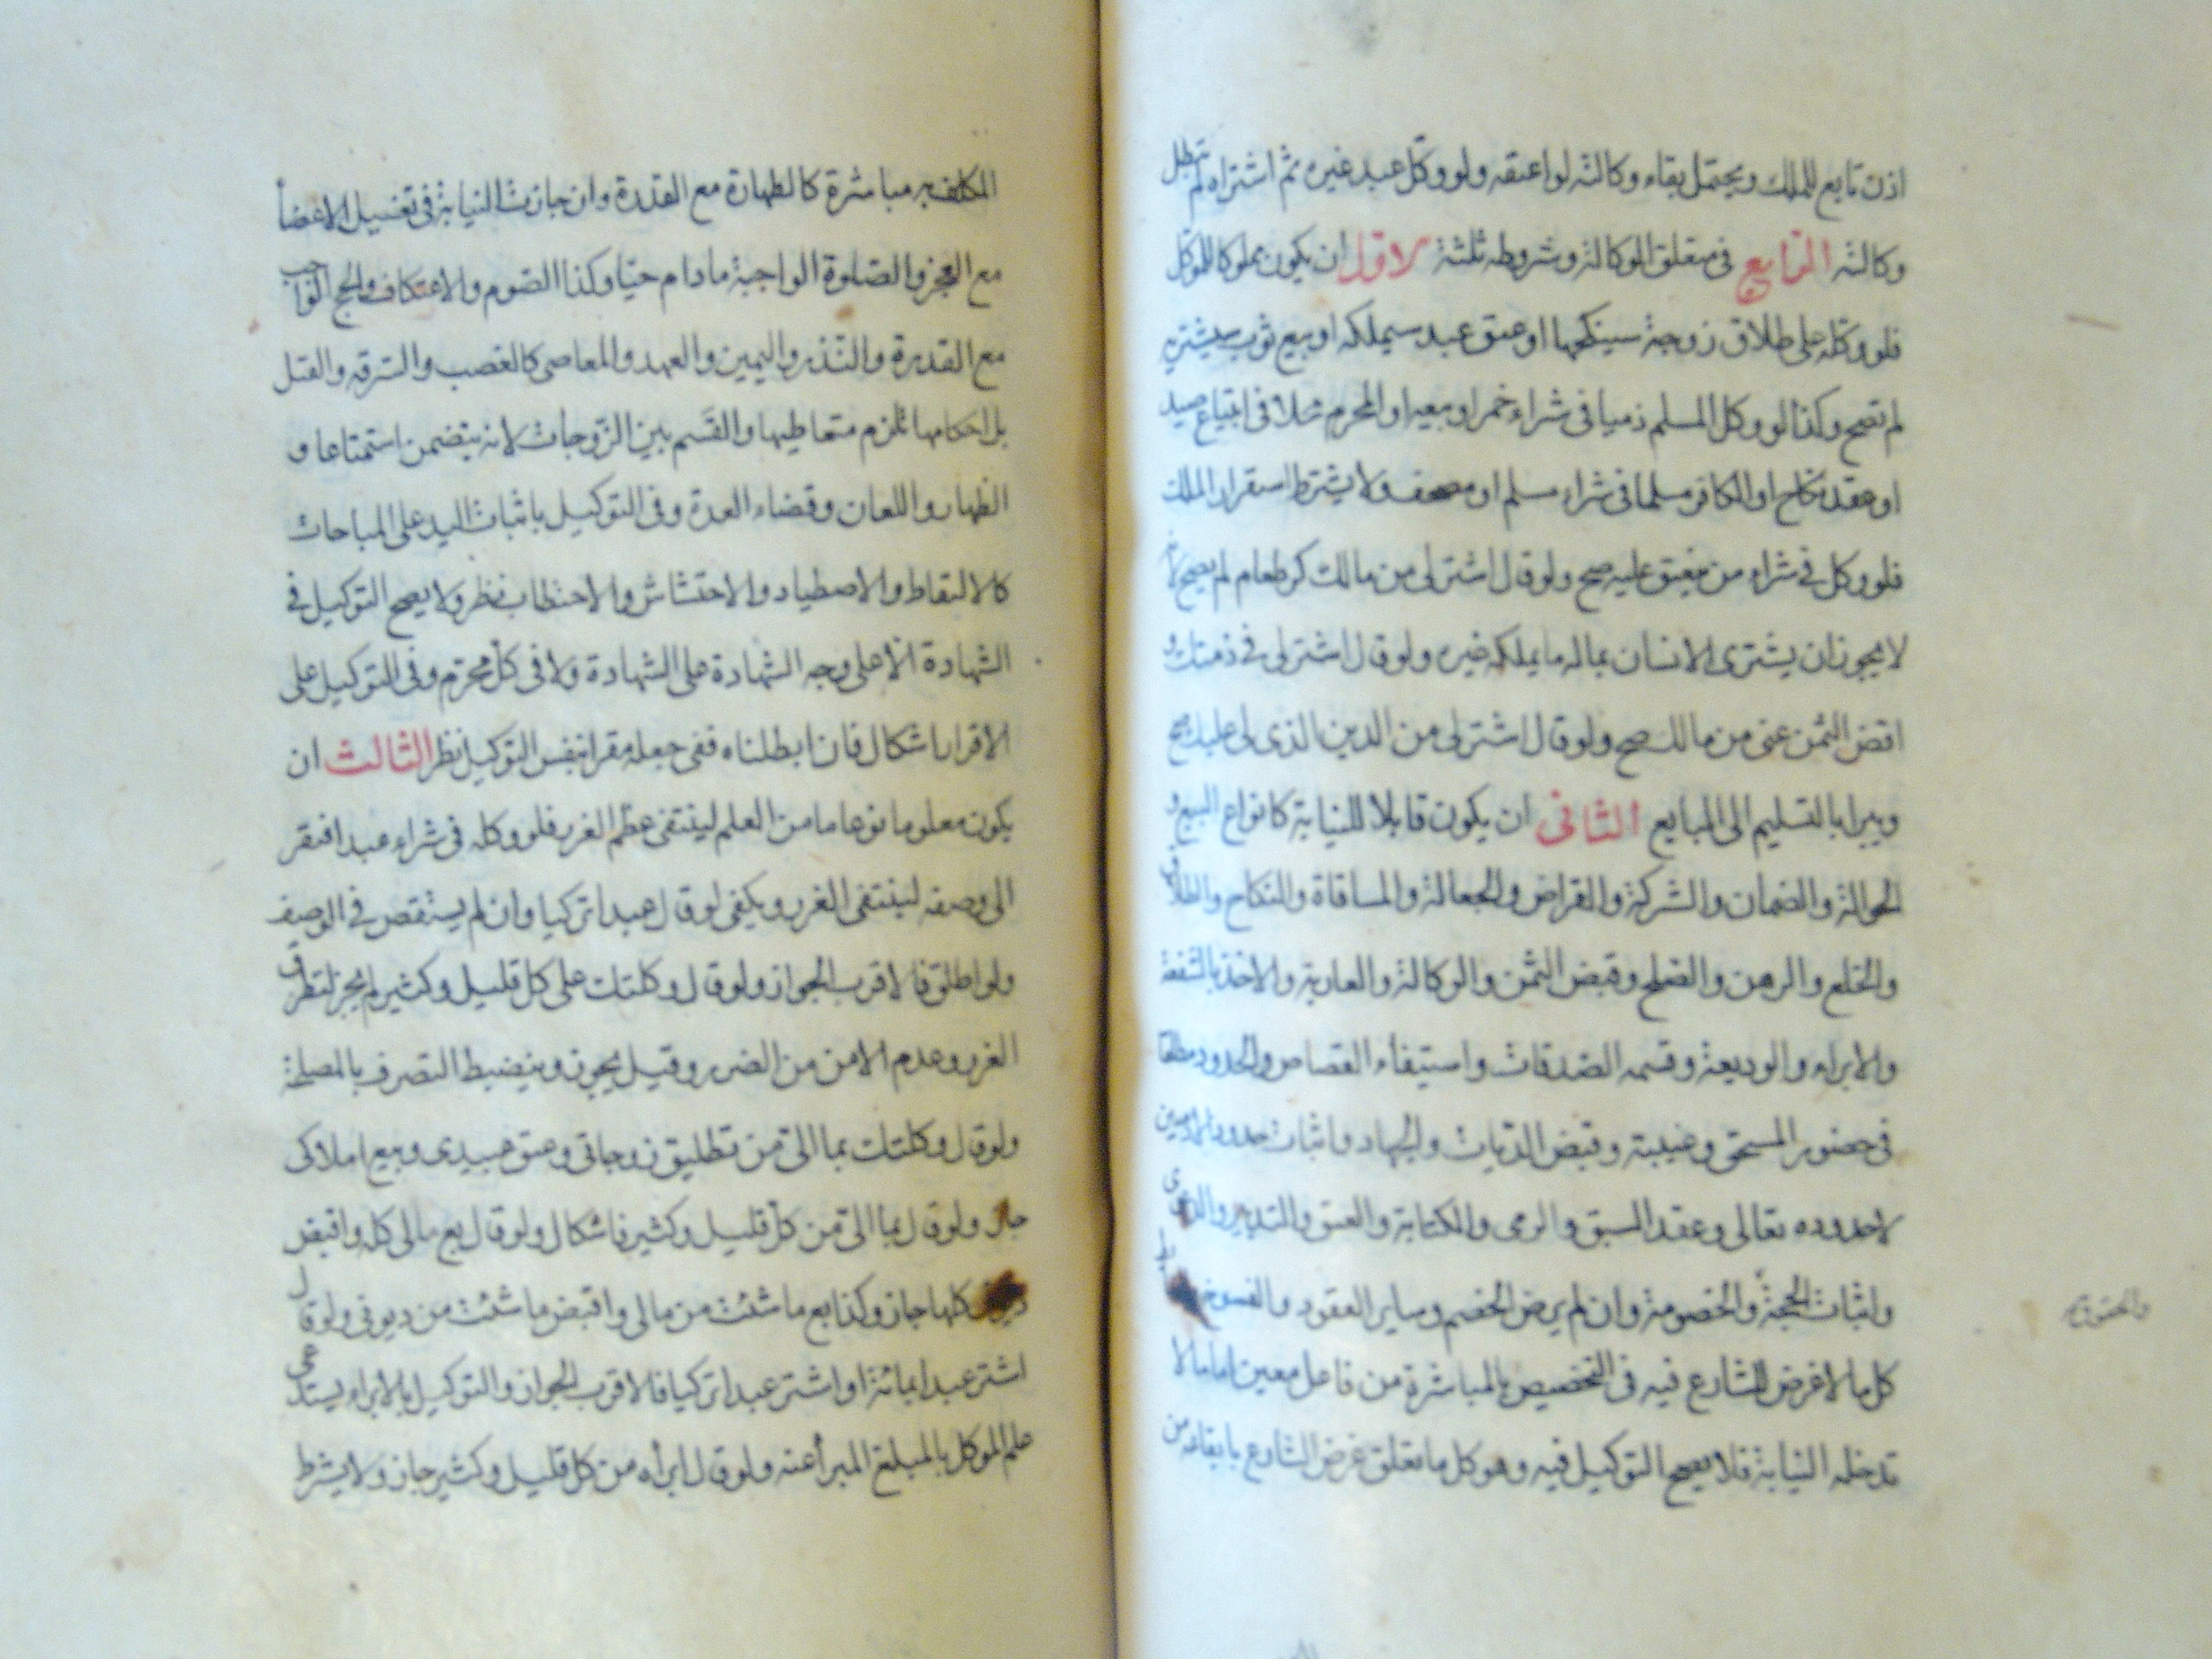 اذن تابع للملك ويحتمل بقاء وكالته لو اعتقه ولو وكل عبد غيره ثم اشتراه لم تبطل
وكالته الرابع فى متعلق الوكالة وشروطه ثلثة الاول ان يكون مملوكا للموكل
فلو وكله على طلاق زوجة سينكحها او عتق عبد سيملكه او بيع ثوب سيشتريه
لم تصح وكذا لو وكل المسلم ذميا فى شراء خمر او بيعه او المحرم محلا فى ابتياع صيد
او عقد نكاح او الكافر مسلما فى شراء مسلم او مصحف ولا يشترط استقرار الملك
فلو وكل فى شراء من يعتق عليه صح ولو قال اشتر لى من مالك كر طعام لم يصح لانه
لا يجوز ان يشترى الانسان بماله ما يملكه غيره ولو قال اشتر لى فى ذمتك و
اقض الثمن عنى من مالك صح ولو قال اشتر لى من الدين الذى لى عليك صح
ويبرا بالتسليم الى المبايع الثانى ان يكون قابلا للنيابة كانواع البيع و
الحوالة والضمان والشركة والقراض والجعالة والمساقاة والنكاح والطلاق
والخلع والرهن والصلح وقبض الثمن والوكالة والعارية والاخذ بالشفعة
والابراء والوديعة وقسمه الصدقات واستيفاء القصاص والحدود مطلقا
فى حضور المستحق وغيبته وقبض الديات والجهاد واثبات حدود الادميين
لا حدوده تعالى وعقد السبق والرمى والكتابة والعتق والتدبير والدعوى
واثبات الحجة والخصومة وان لم يرض الخصم وساير العقود والفسوخ
والحقوق
كل ما لا غرض للشارع فيه فى التخصيص بالمباشرة من فاعل معين اما ما لا
تدخله النيابة فلا يصح التوكيل فيه وهو كل ما تعلق غرض الشارع بايقاعه من
المكلف به مباشرة كالطهارة مع القدرة وان جازت النيابة فى تغسيل الاعضاء
مع العجز والصلوة الواجبة ما دام حيا وكذا الصوم والاعتكاف والحج الواجب
مع القدرة والنذر واليمين والعهد والمعاصى كالغصب والسرقه والقتل
بل احكامها تلزم متعاطيها والقسم بين الزوجات لانه يتضمن استمتاعا و
الظهار واللعان وقضاء العدة وفى التوكيل باثبات اليد على المباحات
كالالتقاط والاصطياد والاحتشاش والاحتطاب نظر ولا يصح التوكيل فى
الشهادة الا على وجه الشهادة على الشهادة ولا فى كل محرم وفى التوكيل على
الاقرار اشكال فان ابطلناه ففى جعله مقرا بنفس التوكيل نظر الثالث ان
يكون معلوما نوعا ما من العلم لينتفى عظم الغرر فلو وكله فى شراء عبد افتقر
الى وصفه لينتفى الغرر ويكفى لو قال عبدا تركيا وان لم يستقص فى الوصف
ولو اطلق فالاقرب الجواز ولو قال وكلتك على كل قليل وكثير لم يجز لتطرق
الغرر وعدم الامن من الضرر وقيل يجوز وينضبط التصرف بالمصلحة
ولو قال وكلتك بما الى من تطليق زوجاتى وعتق عبيدى وبيع املاكى
جاز ولو قال بما الى من كل قليل وكثير فاشكال ولو قال بع مالى كله واقبض
ديونى كلها جاز وكذا بع ما شئت من مالى واقبض ما شئت من ديونى ولو قال
اشتر عبدا بمائة او اشتر عبدا تركيا فالاقرب الجواز والتوكيل بالابراء يستدعى
علم الموكل بالمبلغ المبرأ عنه ولو قال ابرأه من كل قليل وكثير جاز ولا يشترط